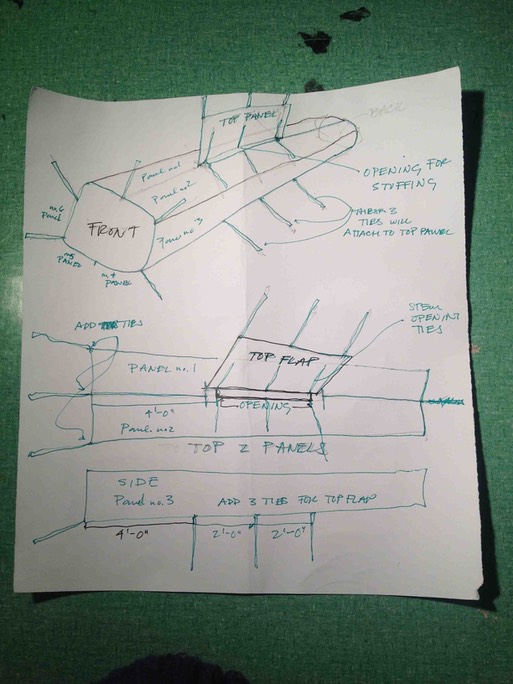 TOP PANEL
BACK
Panel no1
Panel no2
OPENING FOR
STUFFING
Panel no.3
FRONT
THESE 3
TIES WILL
ATTACH TO TOP PANEL
no.6
Panel
no.5
PANEL
no.4
PANEL
ADD TIES
TOP FLAP
OPENING
TIES
PANEL no.1
4'-0"
OPENING
Panel no2
TOP 2 PANELS
SIDE
Panel no.3
ADD 3 TIES FOR TOP FLAP
4'-0"
2'-0"
2'-0"